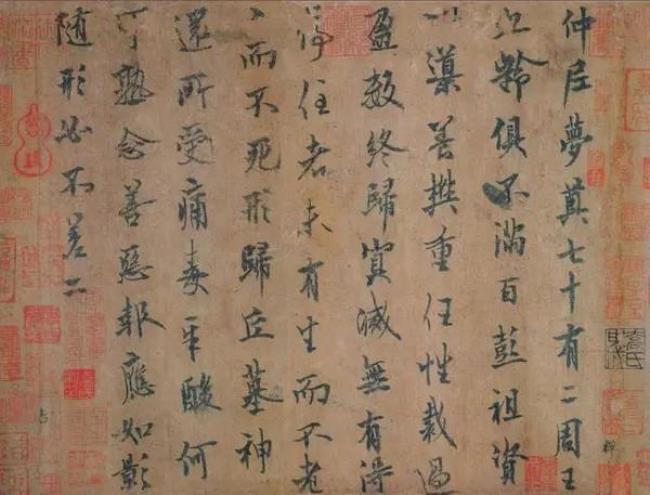 仲尼夢奠七十有二周王
九齡俱不滿百彭祖資
導養樊重任性裁過
盈數終歸冥滅無有得
停住者未有生而不老
而不死形歸丘墓神
還所受痛毒辛酸何
可熟念善惡報應如影
隨形必不差二